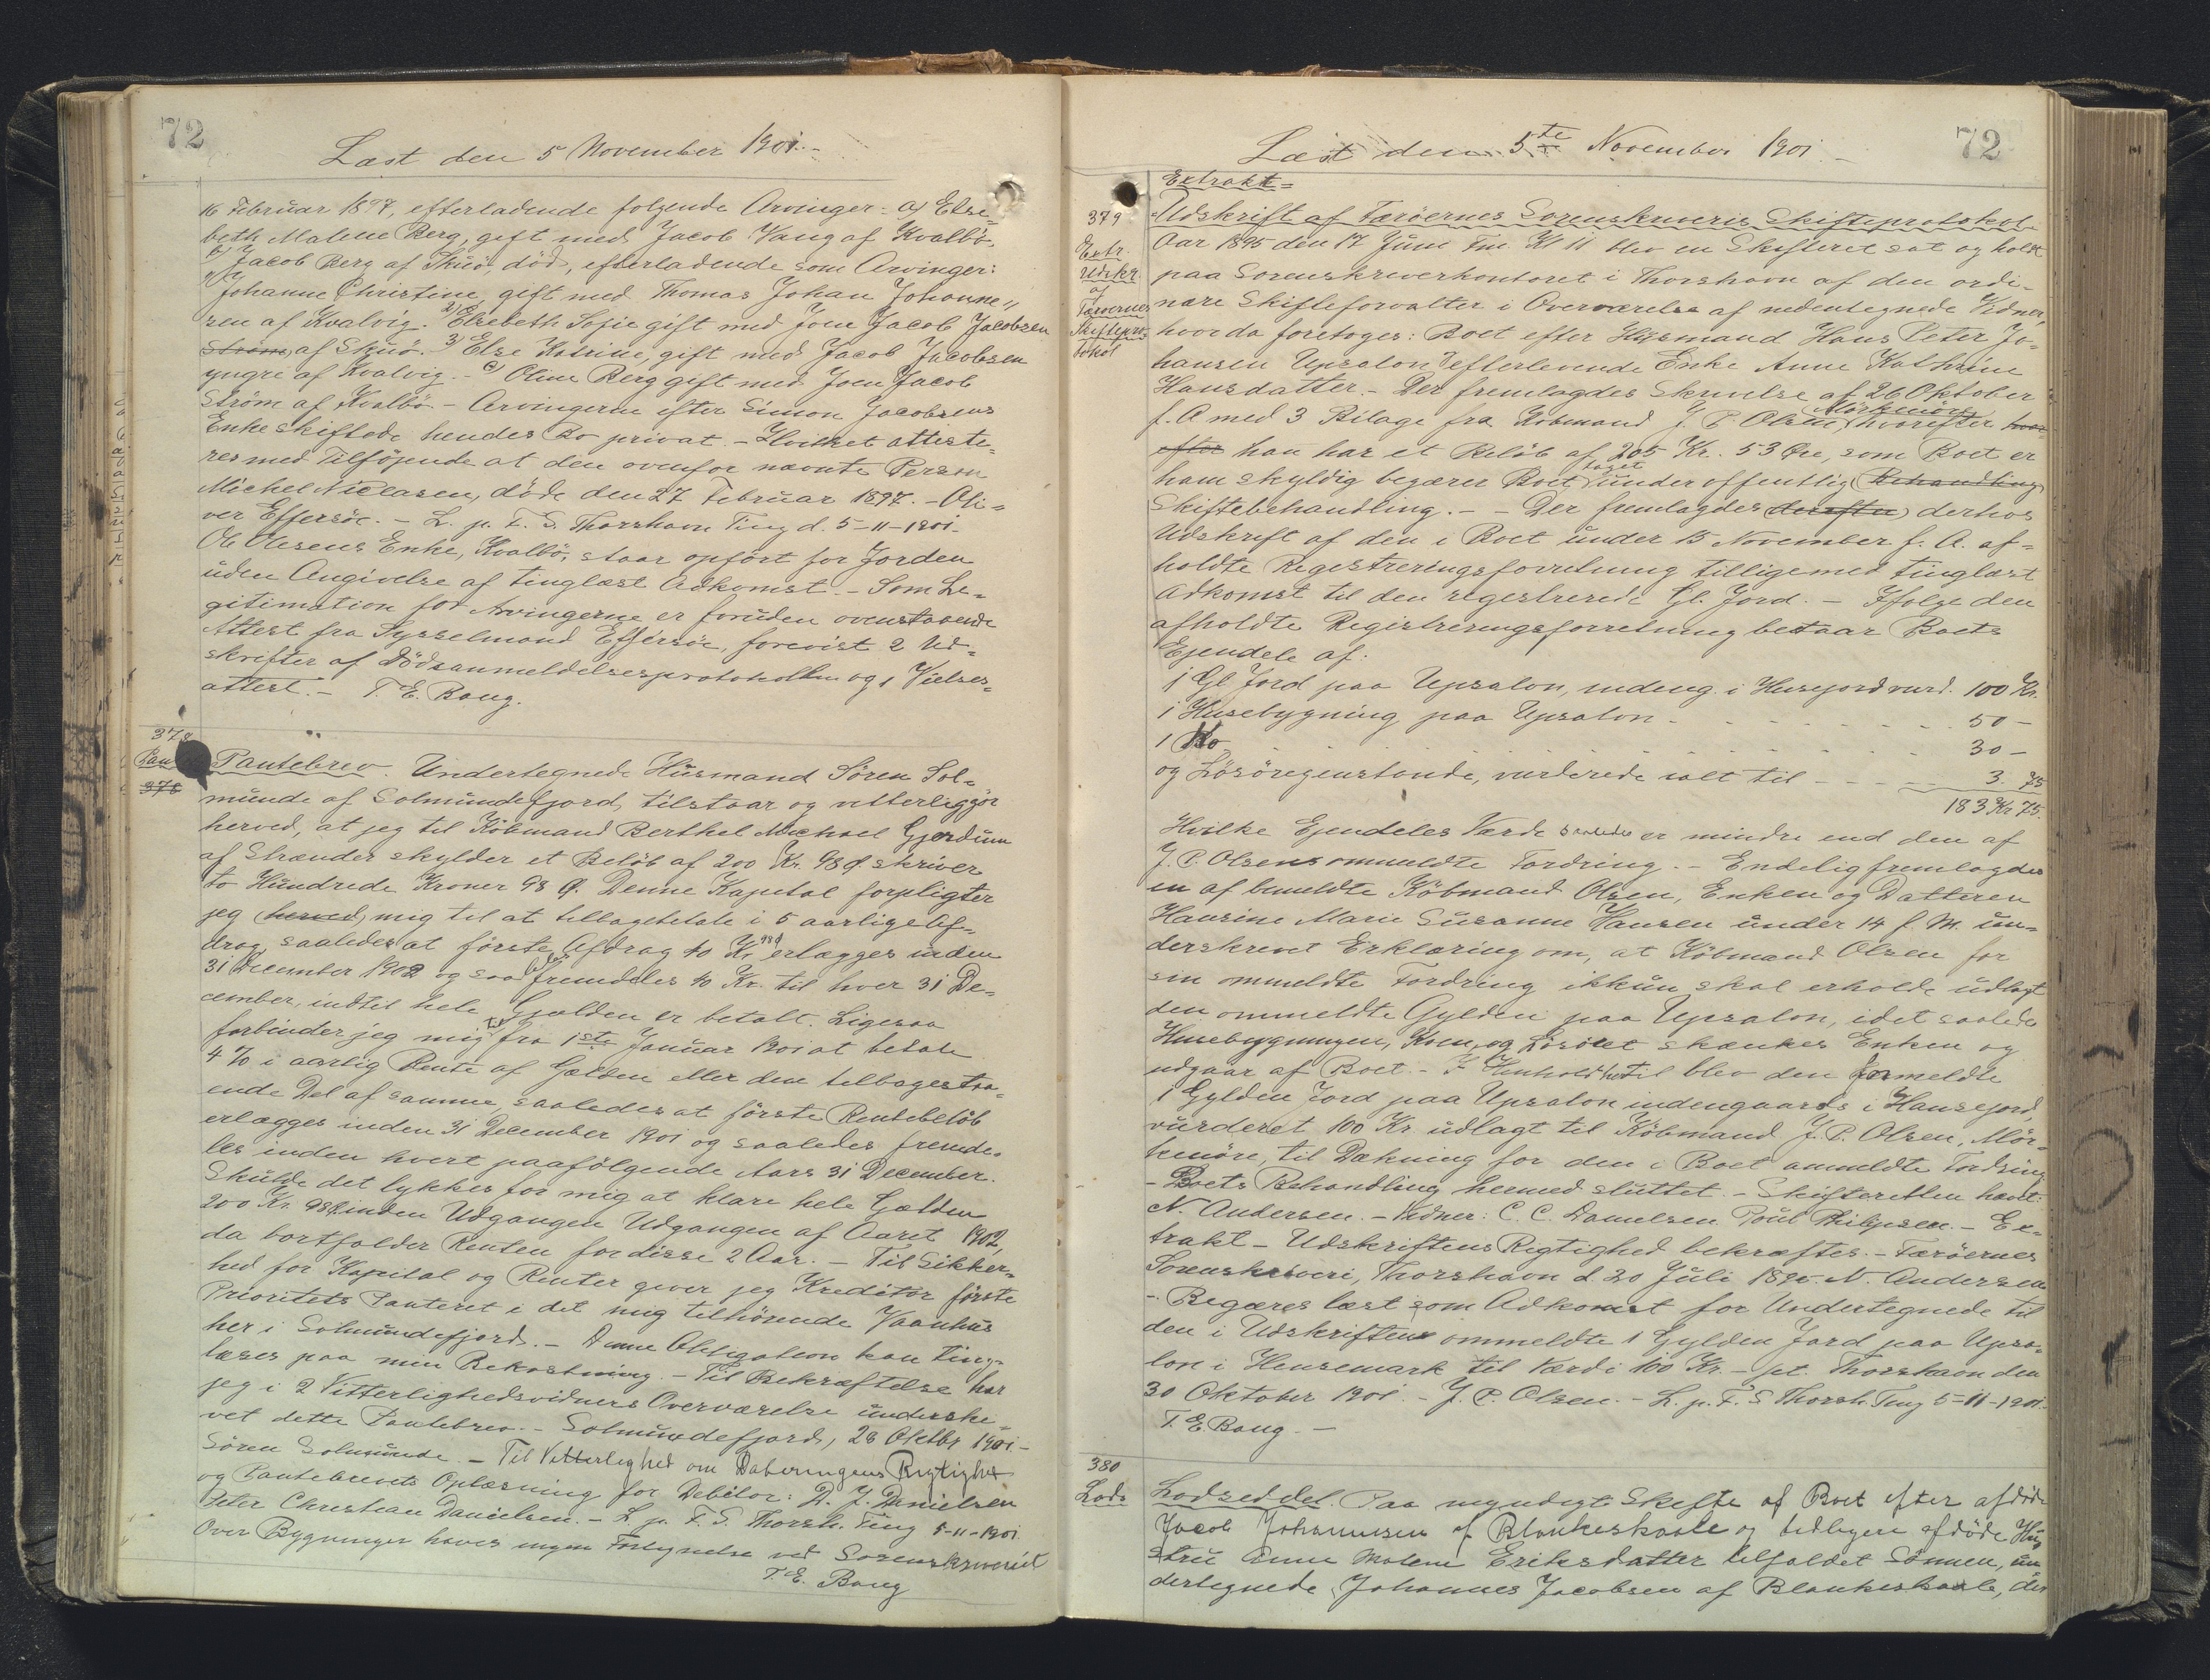 72
Læst den 5 November 1901.-
16 Februar 1897, efterladende folgende Arvinger: a) Else-
beth Malene Berg, gift med Jacob Vang af Kvalbö,
b) Jacob Berg af Skuö, död, efterladende som Arvinger:
1) Johanne Christine, gift med Thomas Johan Johanne-
sen af Kvalvig. 2) Elsebeth Sofie gift med Joen Jacob Jacobsen
Ström, af Skuö. 3) Else Katrine, gift med Jacob Jacobsen
yngri af Kvalvig. - c) Oline Berg gift med Joen Jacob
Ström af Kvalbö - Arvingerne efter Simon Jacobsens
Enke skiftede hendes Bo privat. - Hvilket atteste-
res med Tilföjende at den ovenfor nævnte Person
Michel Niclasen, döde den 27 Februar 1897. - Oli-
ver Effersöe. - L. p. F. S. Thorshavn Ting d. 5-11-1901.
Ole Olesens Enke, Kvalbö, staar opfört for Jorden
uden Angivelse af tinglæst Adkomst. - Som Le-
gitimation for Arvingerne er foruden ovenstaaende
Attest fra Sysselmand Effersöe, forevist 2 Ud-
skrifter af Dödsanmeldelsesprotokollen og 1 Vielses-
attest. - T. E. Baug.
378
Pan
378
Pantebrev. Undertegnede Husmand Sören Sol-
munde af Solmundefjord tilstaar og vitterliggör
herved, at jeg til Köbmand Berthel Michael Gjordum
af Strænder skylder et Belöb af 200 Kr. 98 Ø. skriver
to Hundrede Kroner 98 Ø. Denne Kapital forpligter
jeg (herved) mig til at tilbagebetale i 5 aarlige Af-
drag, saaledes at förste Afdrag 40 Kr 98Ø erlægges inden
31 December 1902 og saaledes fremdeles 40 Kr. til hver 31 De-
cember, indtil hele Gjælden er betalt. Ligesaa
forbinder jeg mig til fra 1ste Januar 1901 at betale
4 % i aarlig Rente af Gælden eller den tilbagestaa-
ende Del af samme, saaledes at förste Rentebelöb
erlægges inden 31 December 1901 og saaledes fremde-
les inden hvert paafölgende Aars 31 December.
Skulde det lykkes for mig at klare hele Gælden
200 Kr. 98Ø inden Udgangen Udgangen af Aaret 1902,
da bortfalder Renten for disse 2 Aar. - Til Sikker-
hed for Kapital og Renter giver jeg Kreditor förste
Prioritets Panteret i det mig tilhörende Vaanhus
her i Solmundefjord. - Denne Obligation kan ting-
læses paa min Bekostning. - Til Bekræftelse har
jeg i 2 Vitterlighedsvidners Overværelse underskre-
vet dette Pantebrev. - Solmundefjord, 28 Oktbr 1901.-
Sören Solmunde. - Til Vitterlighed om Dateringens Rigtighed
og Pantebrevets Oplæsning for Debitor: D. J. Danielsen
Peter Christian Danielsen. - L. p. F. S. Thorsh. Ting 5-11-1901
Over Bygninger haves ingen Fortegnelse ved Sorenskriveriet
T. E. Baug
72
Læst den 5te November 1901.-
Extrakt-
379
Extr.
Udskr.
af
Færøernes
Skiftepro-
tokol
Udskrift af Færöernes Sorenskriveris Skifteprotokol.
Aar 1895 den 17 Juni Fm. Kl 11 blev en Skifteret sat og holdt
paa Sorenskriverkontoret i Thorshavn af den ordi-
nære Skifteforvalter i Overværelse af nedentegnede Vidner,
hvor da foretoges: Boet efter Husmand Hans Peter Jo-
hansen Upsalon & efterlevende Enke Anne Kathrine
Hansdatter. - Der fremlagdes Skrivelse af 26 Oktober
f. A med 3 Bilage fra Köbmand J. P. Olsen, Mörkenöre hvorefter hvor-
efter han har et Belöb af 205 Kr. 53 Öre, som Boet er
ham skyldig begærer Boet taget under offentlig (Behandling)
Skiftebehandling. - - Der fremlagdes (derefter) derhos
Udskrift af den i Boet under 15 November f. A. af-
holdte Registreringsforretning tilligemed tinglæst
Adkomst til den registrerede Gl. Jord. - Ifølge den
afholdte Registreringsforretning bestaar Boets
Ejendele af:
1 Gl Jord paa Upsalon, indeng. i Husejord vurd. 100 Kr.
1 Husebygning paa Upsalon - - - 50 -
1 Ko - - - 30 -
og Lösöregenstande, vurderede ialt til - - - 3 75
183 Kr 75.
Hvilke Ejendeles Værde saaledes er mindre end den af
J. P. Olsens ommeldte Fordring. - Endelig fremlagdes
en af bemeldte Köbmand Olsen, Enken og Datteren
Hansine Marie Susanne Hansen under 14 f. M. un-
derskrevet Erklæring om, at Köbmand Olsen for
sin ommeldte Fordring ikkun skal erholde udlagt
den ommeldte Gylden paa Upsalon, idet saaledes
Husebygningen, Koen, og Lösöret skænkes Enken og
udgaar af Boet. - I Henhold hertil blev den formeldte
1 Gylden Jord paa Upsalon indengaards i Hansejord,
vurderet 100 Kr. udlagt til Köbmand J. P. Olsen, Mör-
kenöre, til Dækning for den i Boet anmeldte Fordring
- Boets Behandling hermed sluttet. - Skifteretten hævet.
N. Andersen. - Vidner: C. C. Danielsen Poul Philipsen. - Ex-
trakt - Udskriftens Rigtighed bekræftes. - Færöernes
Sorenskriveri, Thorshavn d. 20 Juli 1895. N. Andersen
- Begæres læst som Adkomst for Undertegnede til
den i Udskriften ommeldte 1 Gylden Jord paa Upsa-
lon i Hensemark til Værdi 100 Kr. - pt. Thorshavn den
30 Oktober 1901. - J. P. Olsen. - L. p. F. S Thorsh. Ting 5-11-1901.
T. E. Baug. -
380
Lods
Lodseddel. Paa myndigt Skifte af Boet efter afdöde
Jacob Johannesen af Blankeskaale og tidligere afdöde Hu-
stru Anne Malene Eriksdatter tilfaldet Sönnen, un-
dertegnede Johannes Jacobsen af Blankeskaale, den